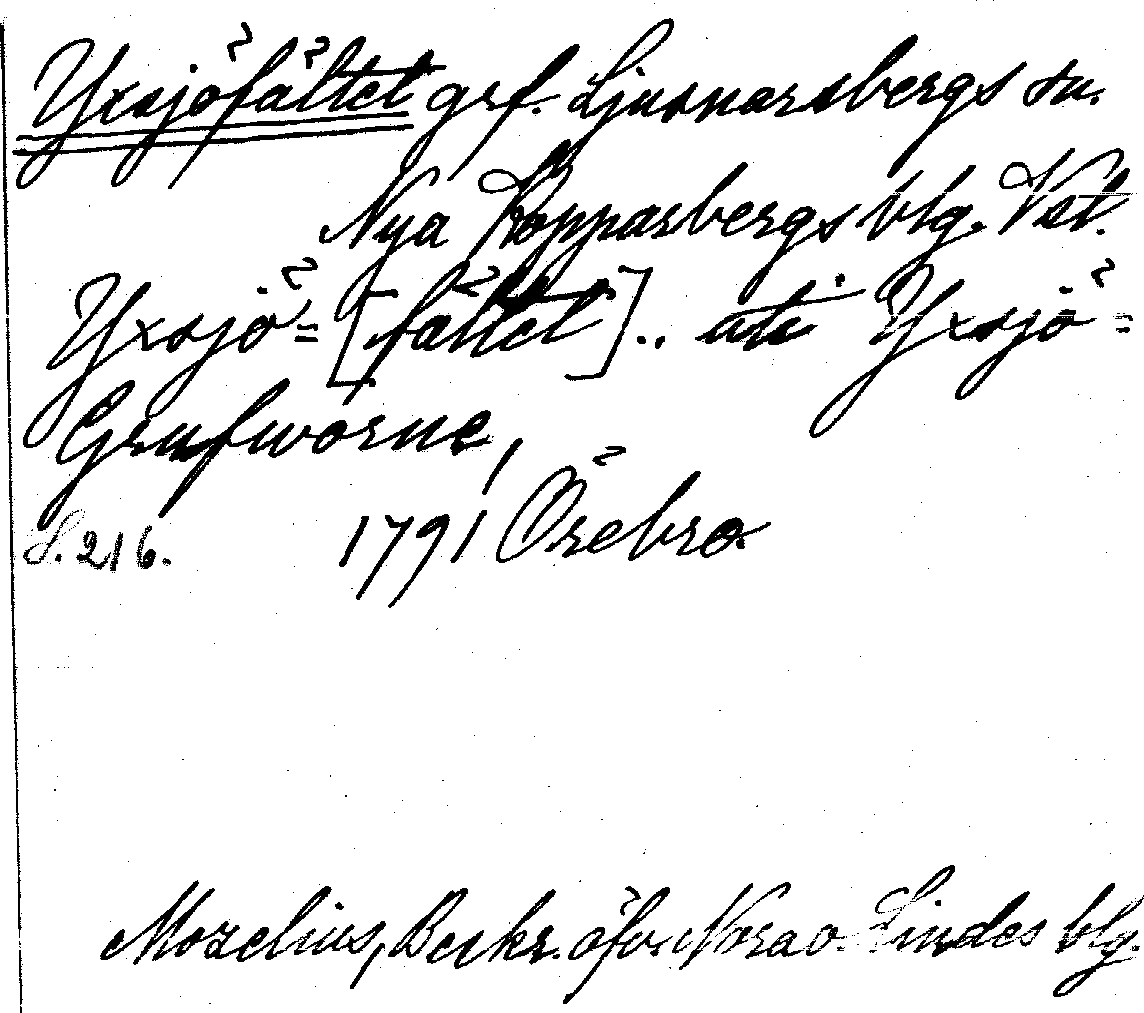 Yxsjöfältet grf. Ljusnarsbergs sn.
Nya Kopparbergs blg. Vstl.
Yxsjö= [fältet].. uti Yxsjö=
Grufworne,
S. 216. 1791 Örebro
Mozelius, Beskr. öfv. Nora o. Lindes blg.